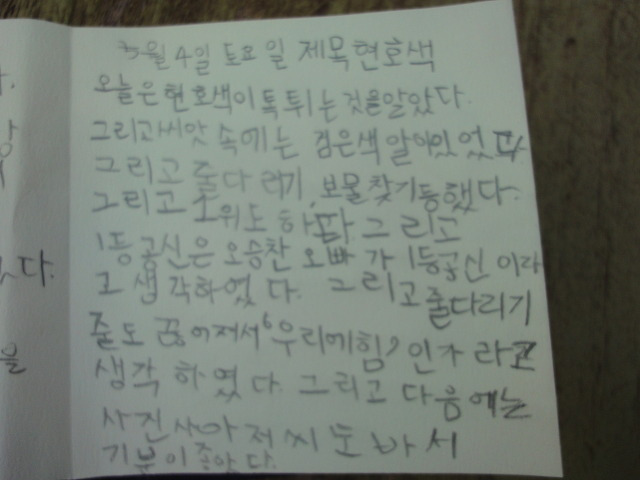 5월 4일 토요일 제목현호색
오늘은 현호색이 톡 튀는 것을 알았다.
그리고 씨앗 속에는 검은색 알이 있었다
그리고 줄다리기, 보물찾기 등했다.
그리고 위도 하다 그리고
1등공신은 오승찬 오빠가 1등공신 이라
고 생각하였다. 그리고 줄다리기
줄도 끊어저서 '우리에힘' 인가 라고
생각 하였다. 그리고 다음에는
사진사아저씨도 바서
기분이 좋았다.
다.
을